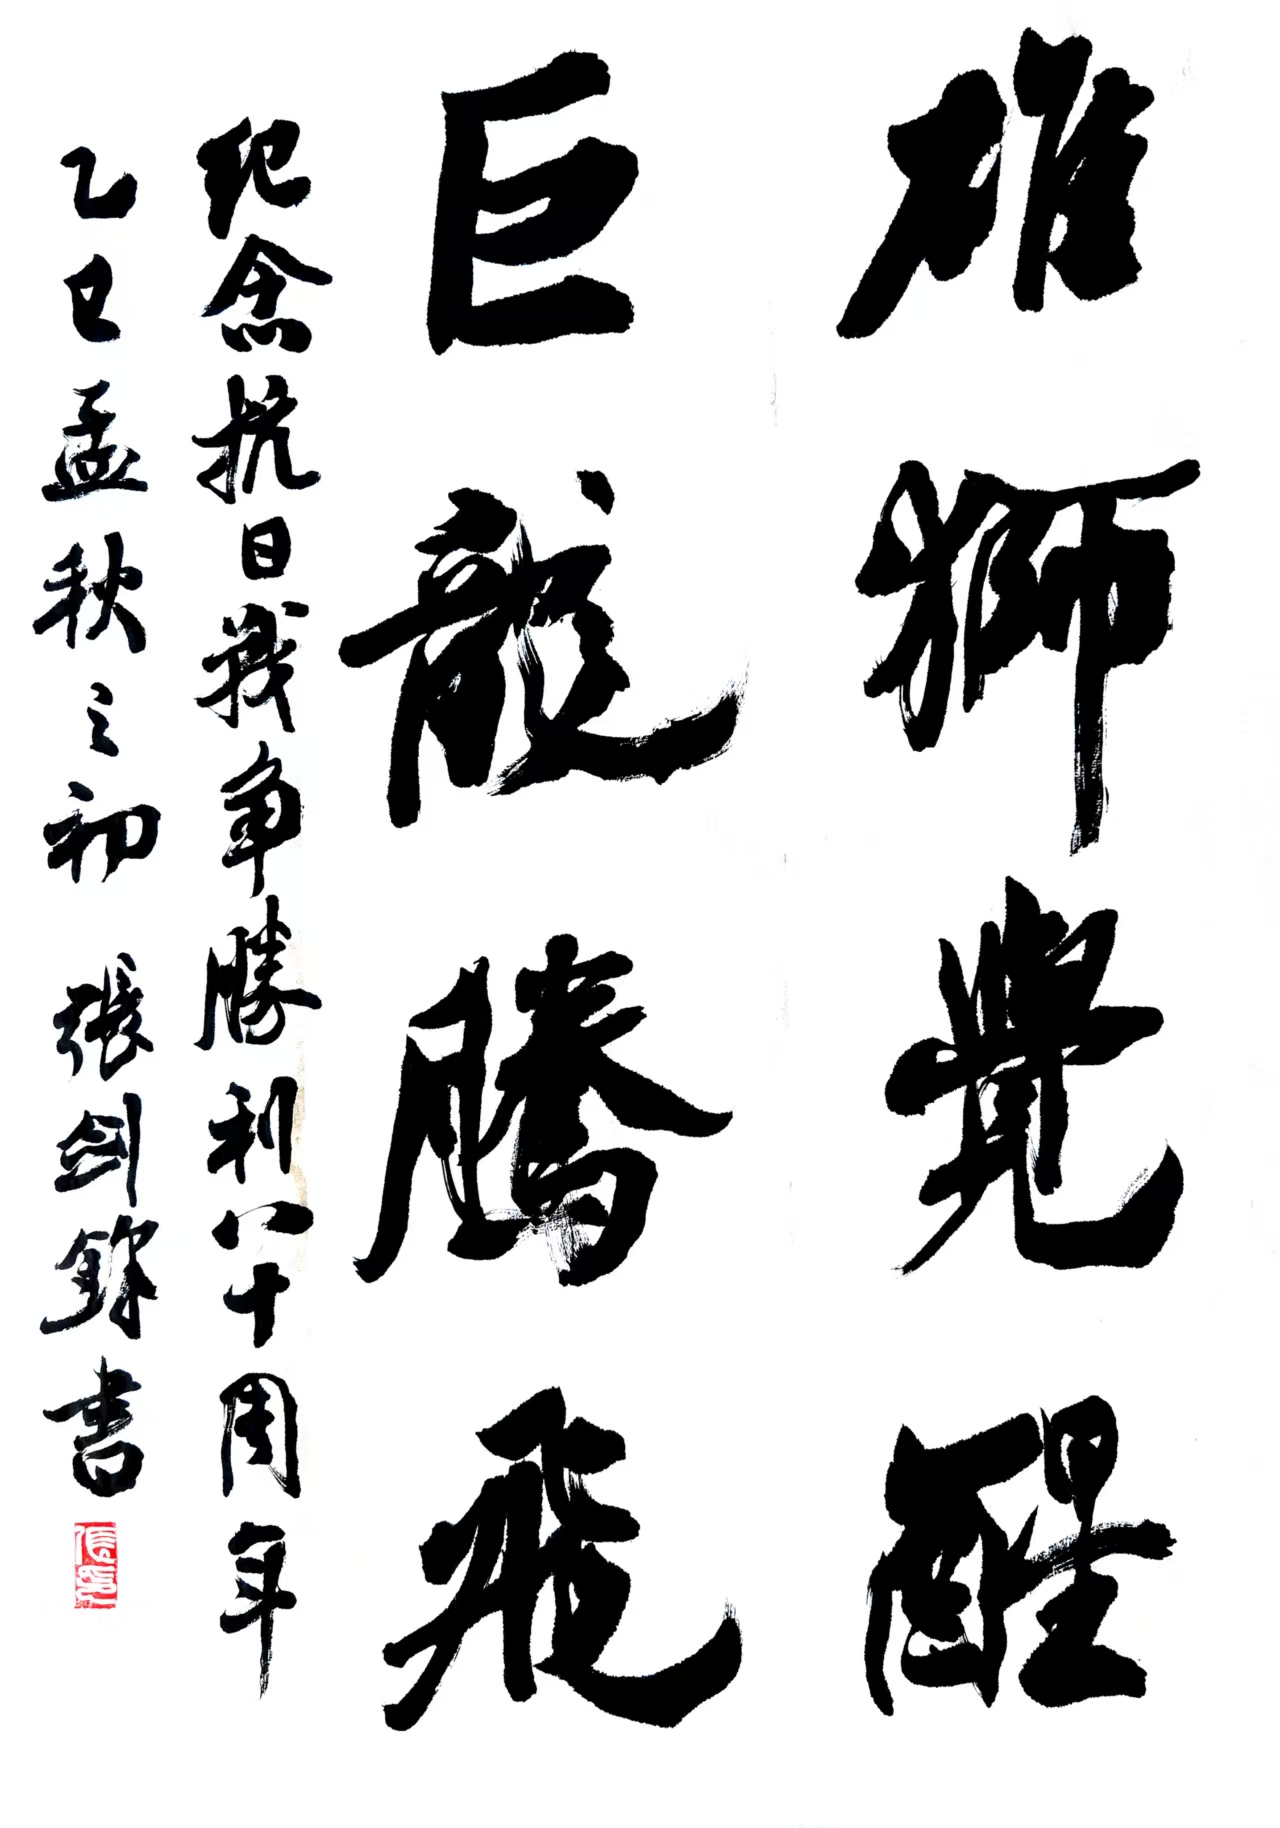 雄獅覺醒
巨龍騰飛
纪念抗日戰争勝利八十周年
乙巳孟秋之初 張剑銘書